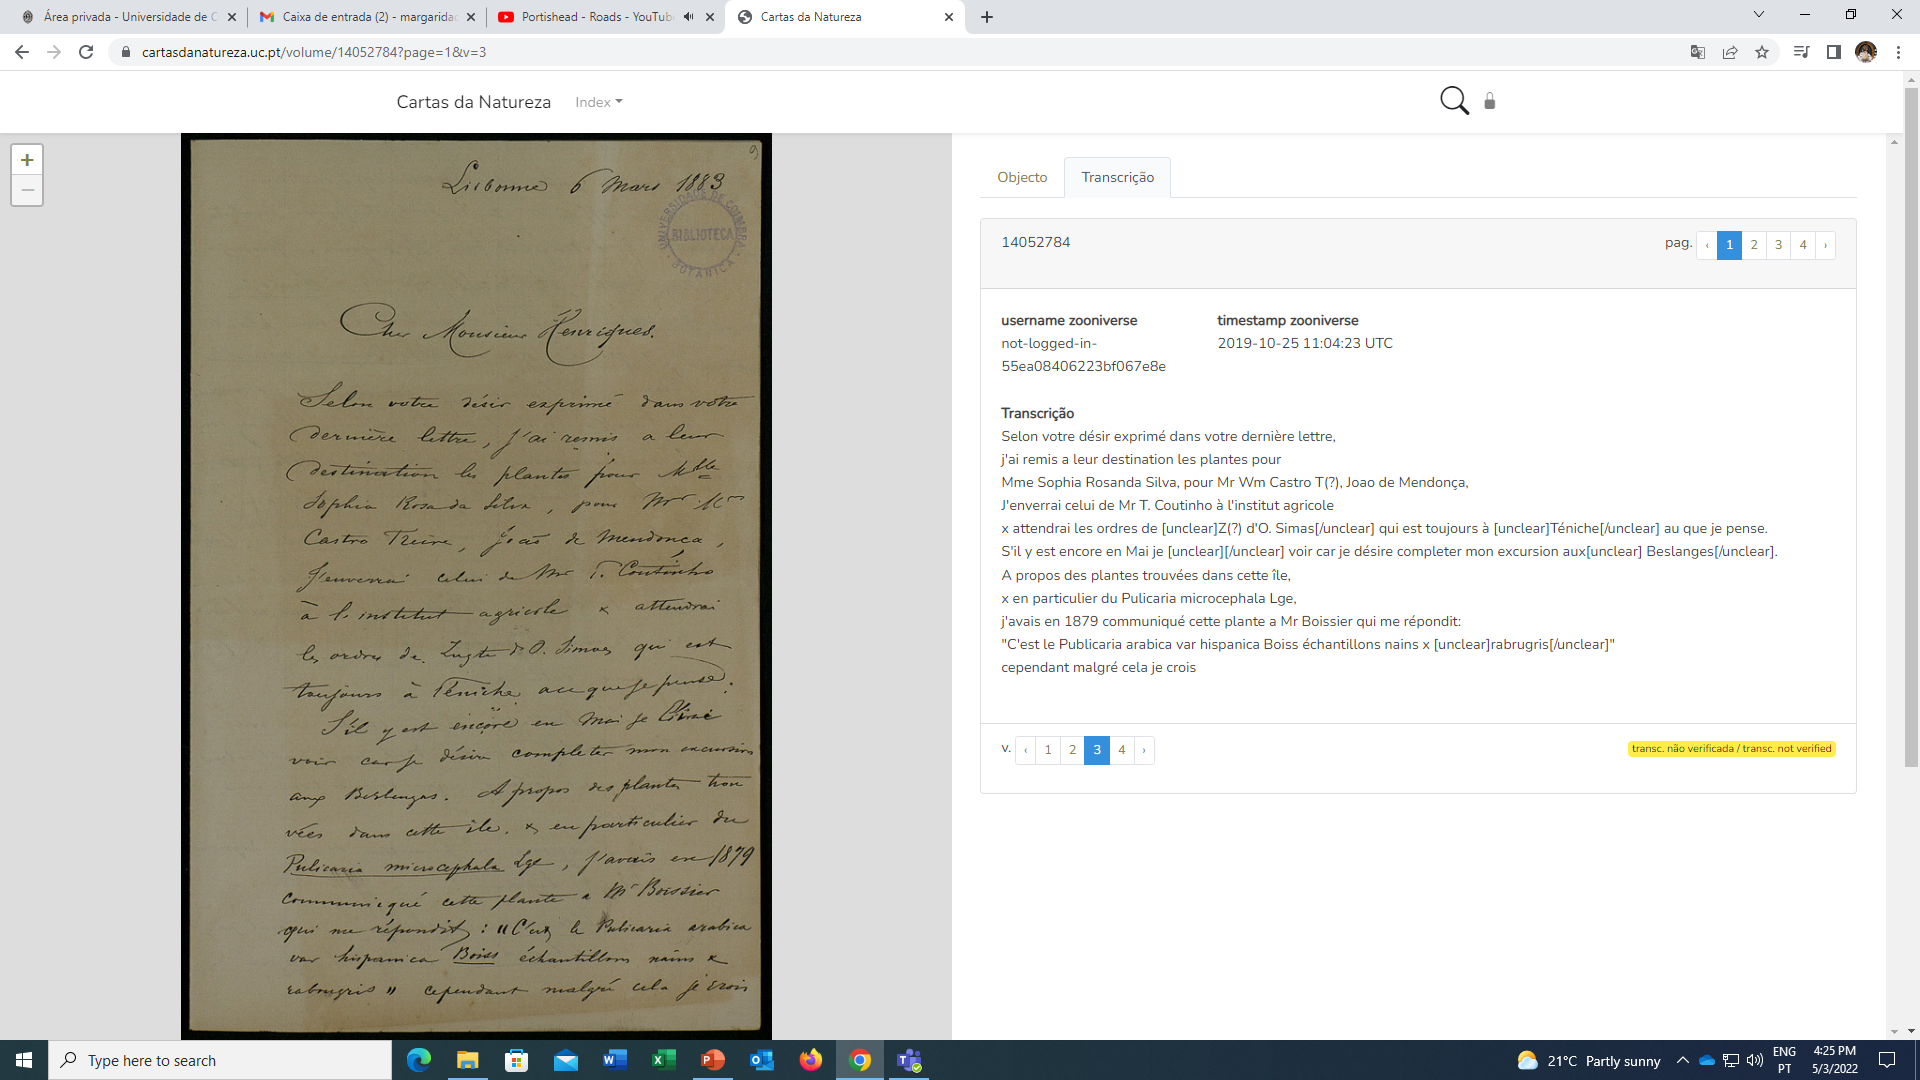 Área privada - Universidade de C
Caixa de entrada (2) - margarida
Portishead - Roads - YouTube
Cartas da Natureza
cartasdanatureza.uc.pt/volume/14052784?page=1&v=3
Cartas da Natureza
Index
+
−
9
Lisbonne 6 Mars 1883
UNIVERSIDADE DE COIMBRA
BIBLIOTECA
BOTANICA
Cher Monsieur Henriques.
Selon votre désir exprimé dans votre
dernière lettre, j'ai remis a leur
destination les plantes pour Mlle
Sophia Rosa da Silva, pour Mr
Castro Freire, João de Mendonca,
J'enverrai celui de Mr T. Coutinho
à l'institut agricole x attendrai
les ordres de D. Simoes qui est
toujours à Péniche a ce que je pense.
S'il y est encore en Mai je l'irai
voir car je désire completer mon excursion
aux Berlengas. A propos des plantes trou
vées dans cette île, x en particulier du
Pulicaria microcephala Lge, j'avais en 1879
communiqué cette plante a Mr Boissier
qui me répondit : "C'est le Pulicaria arabica
var hispanica Boiss échantillons nains x
rabougris" cependant malgré cela je crois
Objecto
Transcrição
14052784
pag. ‹ 1 2 3 4 ›
username zooniverse
not-logged-in-
55ea08406223bf067e8e
timestamp zooniverse
2019-10-25 11:04:23 UTC
Transcrição
Selon votre désir exprimé dans votre dernière lettre,
j'ai remis a leur destination les plantes pour
Mme Sophia Rosanda Silva, pour Mr Wm Castro T(?), Joao de Mendonça,
J'enverrai celui de Mr T. Coutinho à l'institut agricole
x attendrai les ordres de [unclear]Z(?) d'O. Simas[/unclear] qui est toujours à [unclear]Téniche[/unclear] au que je pense.
S'il y est encore en Mai je [unclear][/unclear] voir car je désire completer mon excursion aux[unclear] Beslanges[/unclear].
A propos des plantes trouvées dans cette île,
x en particulier du Pulicaria microcephala Lge,
j'avais en 1879 communiqué cette plante a Mr Boissier qui me répondit:
"C'est le Publicaria arabica var hispanica Boiss échantillons nains x [unclear]rabrugris[/unclear]"
cependant malgré cela je crois
v. ‹ 1 2 3 4 ›
transc. não verificada / transc. not verified
Type here to search
21°C Partly sunny
ENG
PT
4:25 PM
5/3/2022